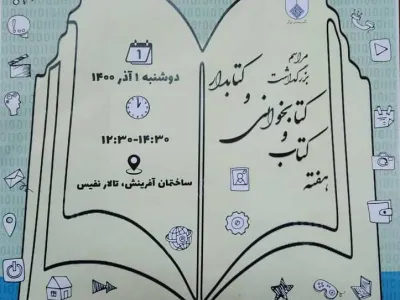 مراسم
بزرگداشت
هفته
کتاب و
کتابخوانی و
کتابدار
1
دوشنبه ۱ آذر ۱۴۰۰
۱۲:۳۰-۱۴:۳۰
ساختمان آفرینش، تالار نفیس